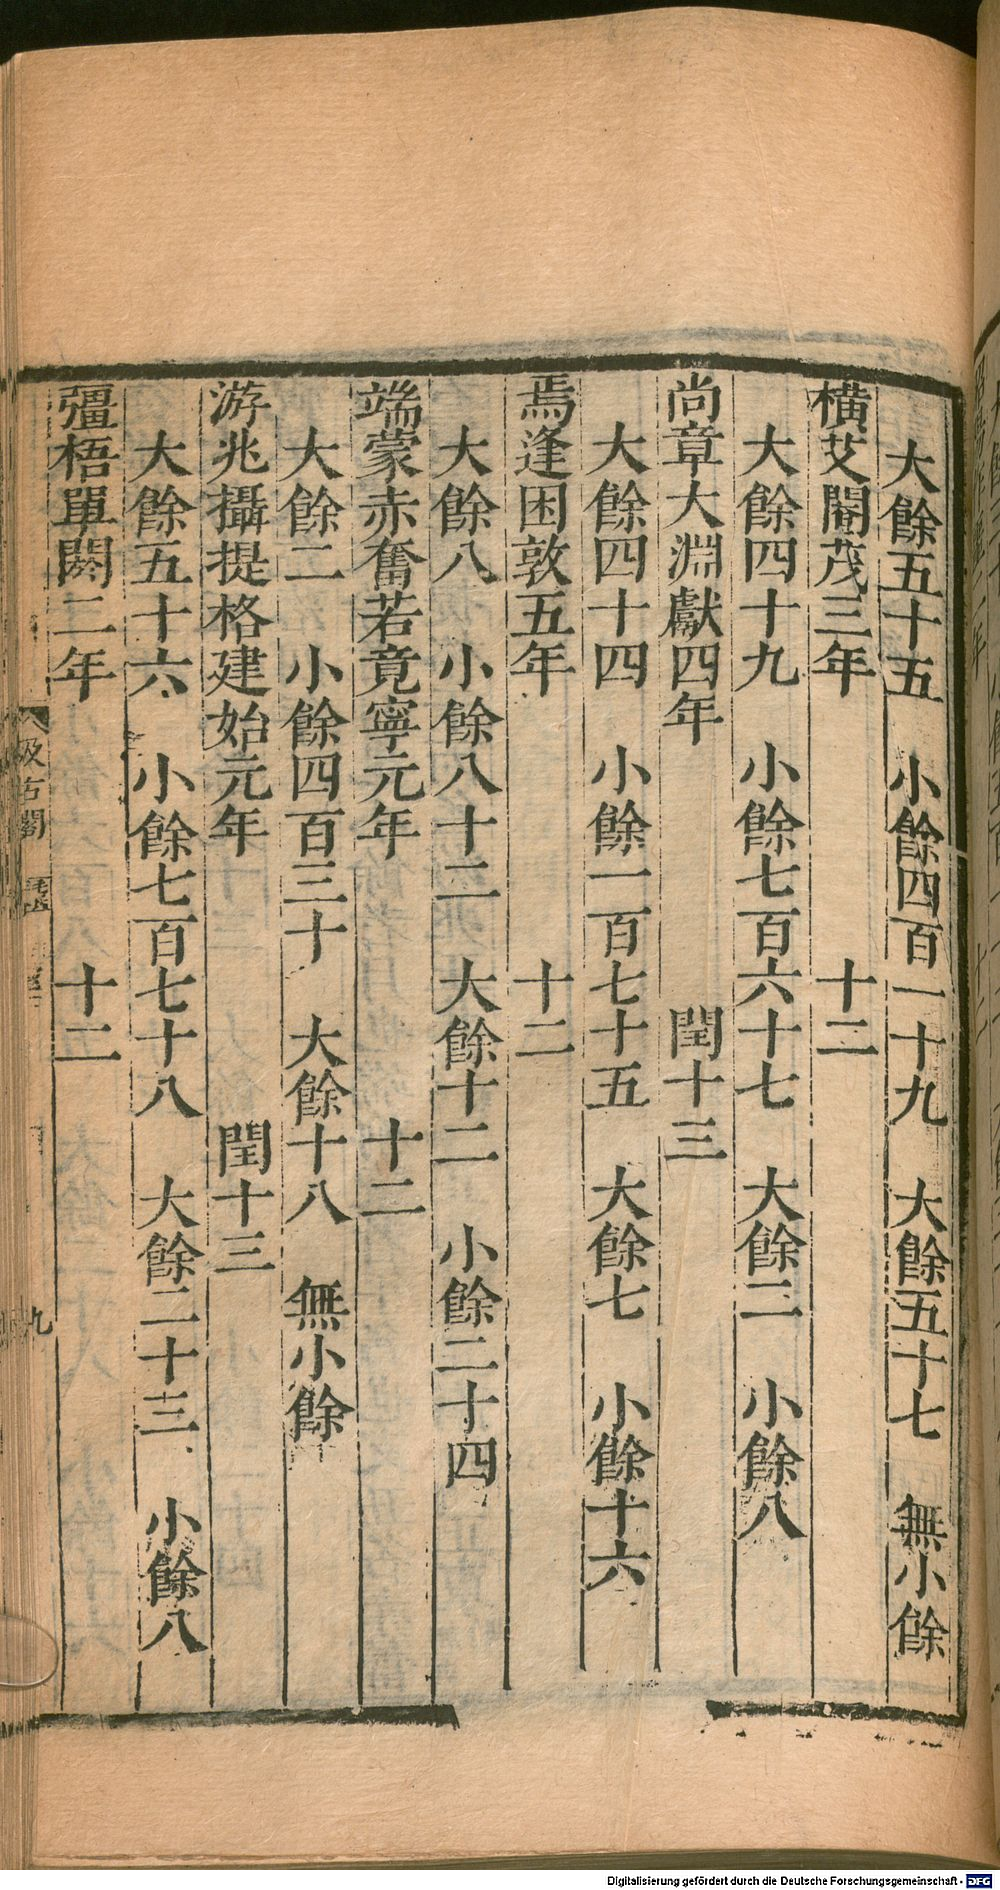 大餘五十五　小餘四百一十九　大餘五十七　無小餘
橫艾閹茂三年　十二
大餘四十九　小餘七百六十七　大餘二　小餘八
尚章大淵獻四年　閏十三
大餘四十四　小餘一百七十五　大餘七　小餘十六
焉逢困敦五年　十二
大餘八　小餘八十二　大餘十二　小餘二十四
端蒙赤奮若竟寧元年　十二
大餘二　小餘四百三十　大餘十八　無小餘
游兆攝提格建始元年　閏十三
大餘五十六　小餘七百七十八　大餘二十三　小餘八
彊梧單閼二年　十二
汲古閣
九
Digitalisierung gefördert durch die Deutsche Forschungsgemeinschaft - DFG